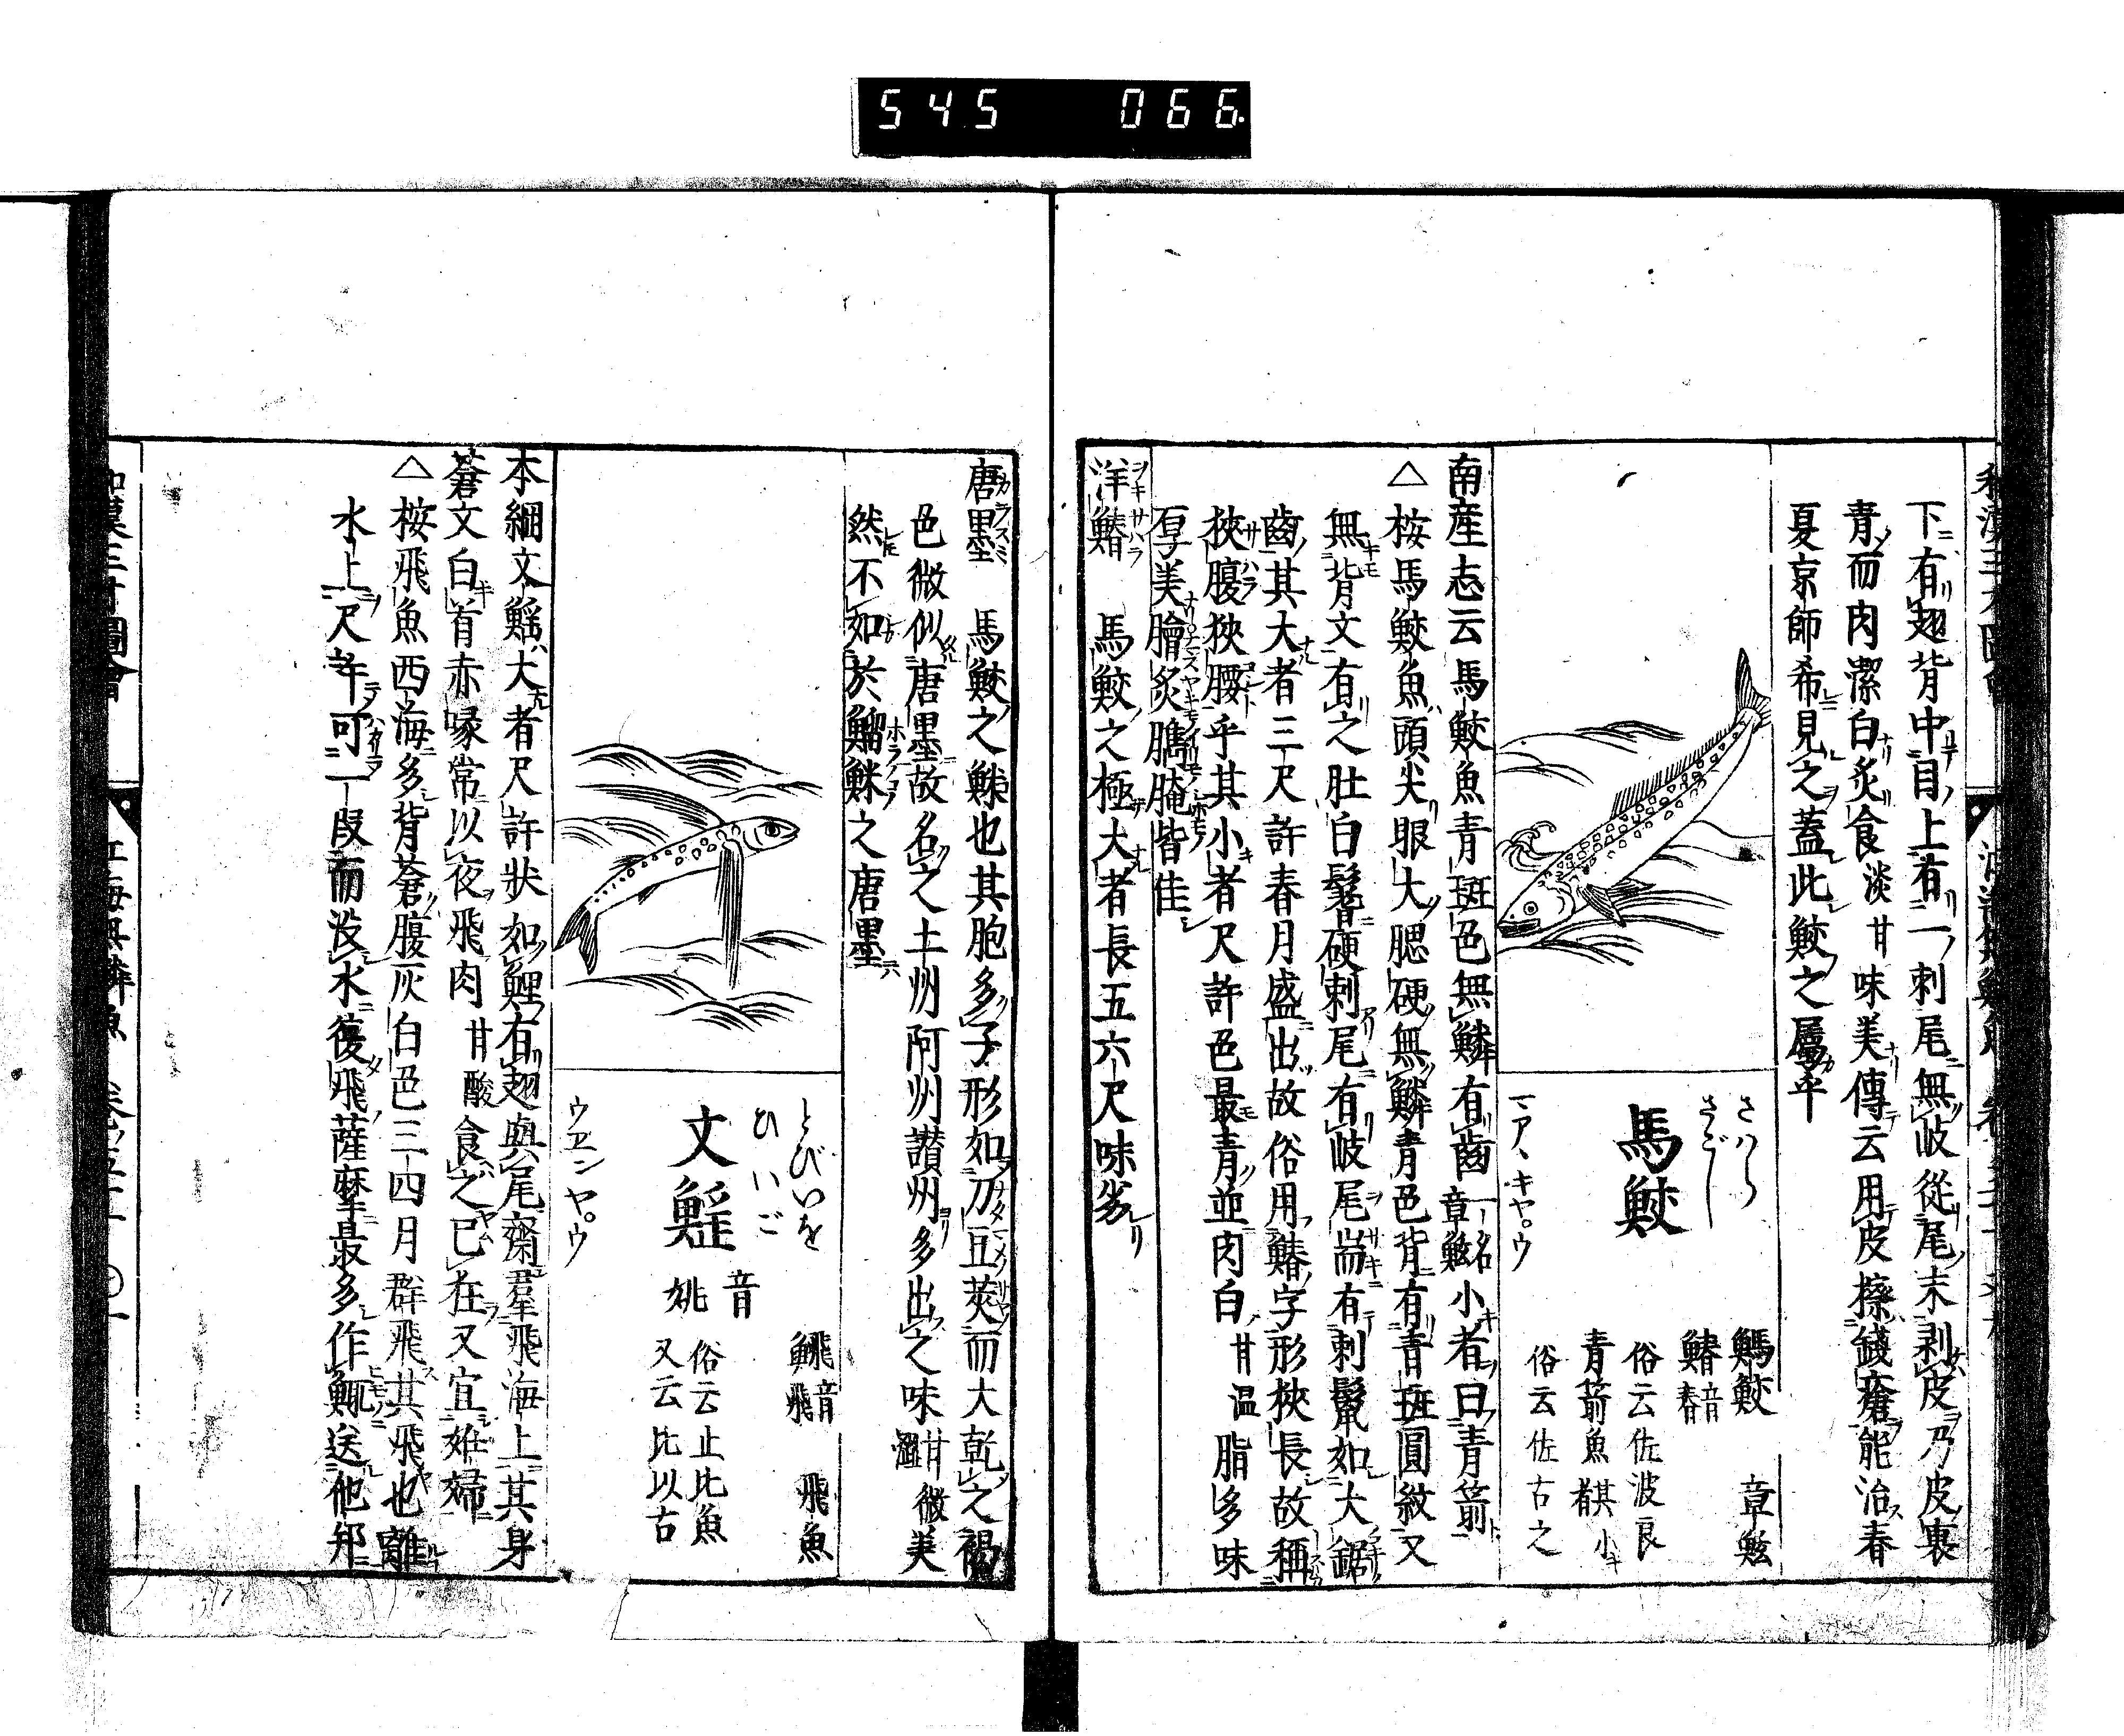 545 066
下有翅背中目上有一刺尾無岐從尾末剥皮乃皮裏
青而肉潔白炙食淡甘味美傳云用皮擦錢瘡能治春
夏京師希見之蓋此鮫之屬乎
馬鮫
さはら
さごし
マアヽキヤ゜ウ
䲖鮫 章鮌
鰆音春
俗云佐波良
青箭魚其小者
俗云佐古之
南産志云馬鮫魚青斑色無鱗有齒一名章鮌小者曰青箭
△桉馬鮫魚頭尖眼大腮硬無鱗青色背有青斑圓紋又
無背文有之肚白鬐硬刺尾有岐尾耑有刺鬛如大鋸
齒其大者三尺許春月盛出故俗用鰆字形狹長故稱
狹腹狹腰乎其小者尺許色最青並肉白甘温脂多味
厚美膾炙臇腌皆佳
洋鰆 馬鮫之極大者長五六尺味劣
唐墨 馬鮫之鮇也其胞多子形如刀豆莢而大乾之褐
色微似唐墨故名之土州阿州讃州多出之味甘㵎微美
然不如於鰡鮇之唐墨
文鰩
とびいを
ひいご
ウエンヤ゜ウ
音姚
鱻音飛 飛魚
俗云止比魚
又云比以古
本綱文鰩大者尺許状如鯉有翅與尾齊羣飛海上其身
蒼文白首赤喙常以夜飛肉甘酸食之已狂又宜姙婦
△桉飛魚西海多背蒼腹灰白色三四月群飛其飛也離
水上尺許可一段而没水復飛薩摩最多作鮿送他邦